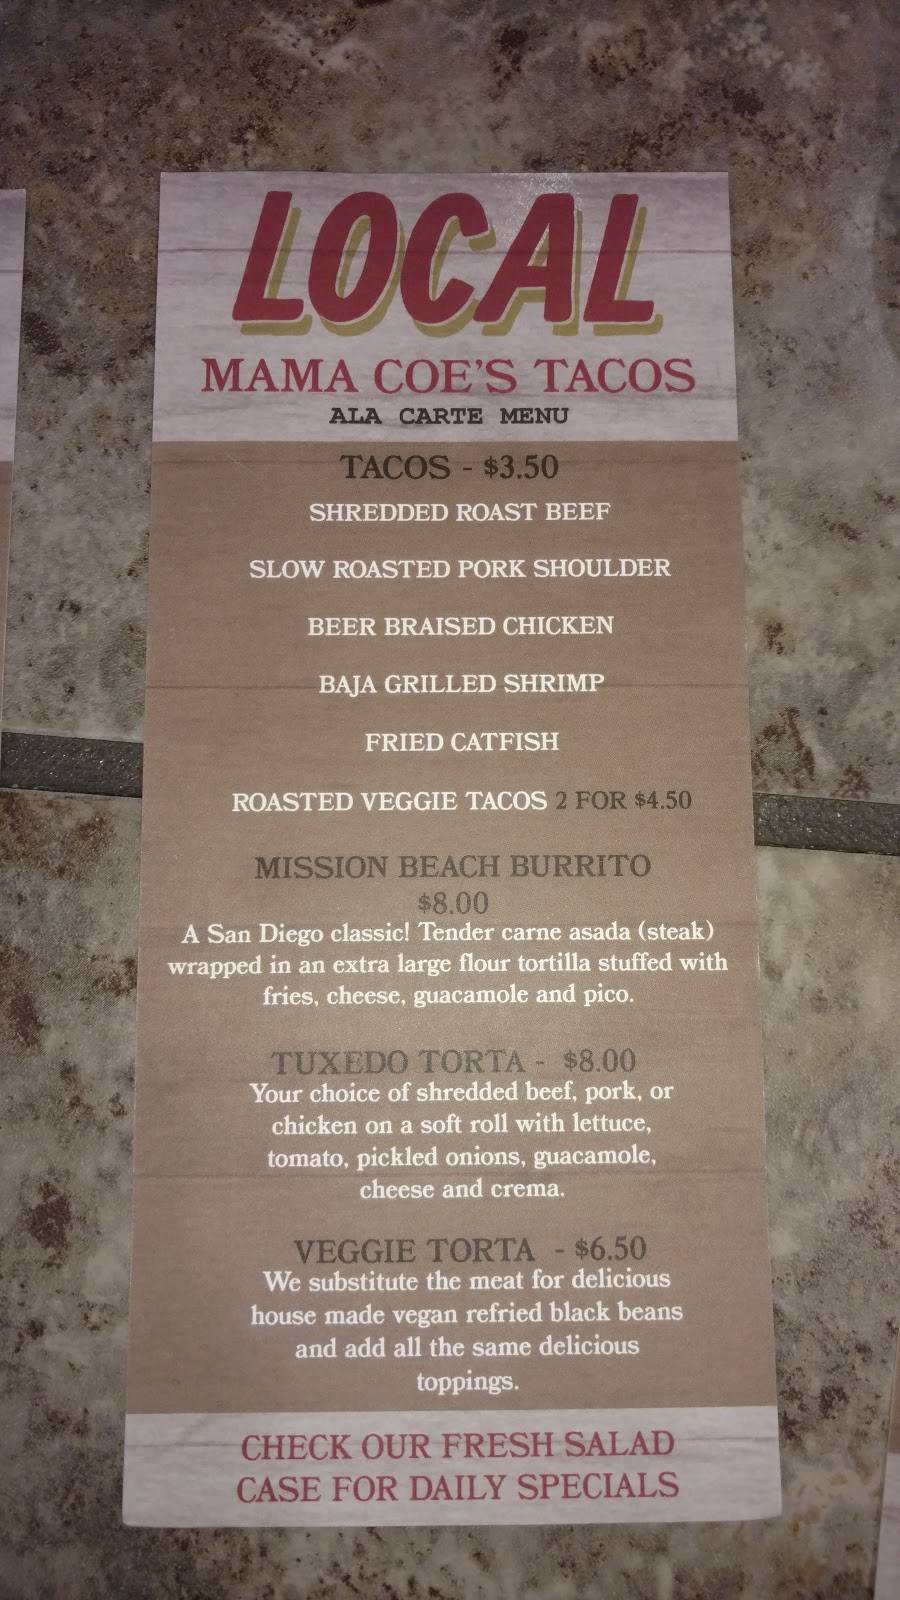 LOCAL
MAMA COE'S TACOS
ALA CARTE MENU
TACOS - $3.50
SHREDDED ROAST BEEF
SLOW ROASTED PORK SHOULDER
BEER BRAISED CHICKEN
BAJA GRILLED SHRIMP
FRIED CATFISH
ROASTED VEGGIE TACOS 2 FOR $4.50
MISSION BEACH BURRITO
$8.00
A San Diego classic! Tender carne asada (steak)
wrapped in an extra large flour tortilla stuffed with
fries, cheese, guacamole and pico.
TUXEDO TORTA - $8.00
Your choice of shredded beef, pork, or
chicken on a soft roll with lettuce,
tomato, pickled onions, guacamole,
cheese and crema.
VEGGIE TORTA - $6.50
We substitute the meat for delicious
house made vegan refried black beans
and add all the same delicious
toppings.
CHECK OUR FRESH SALAD
CASE FOR DAILY SPECIALS